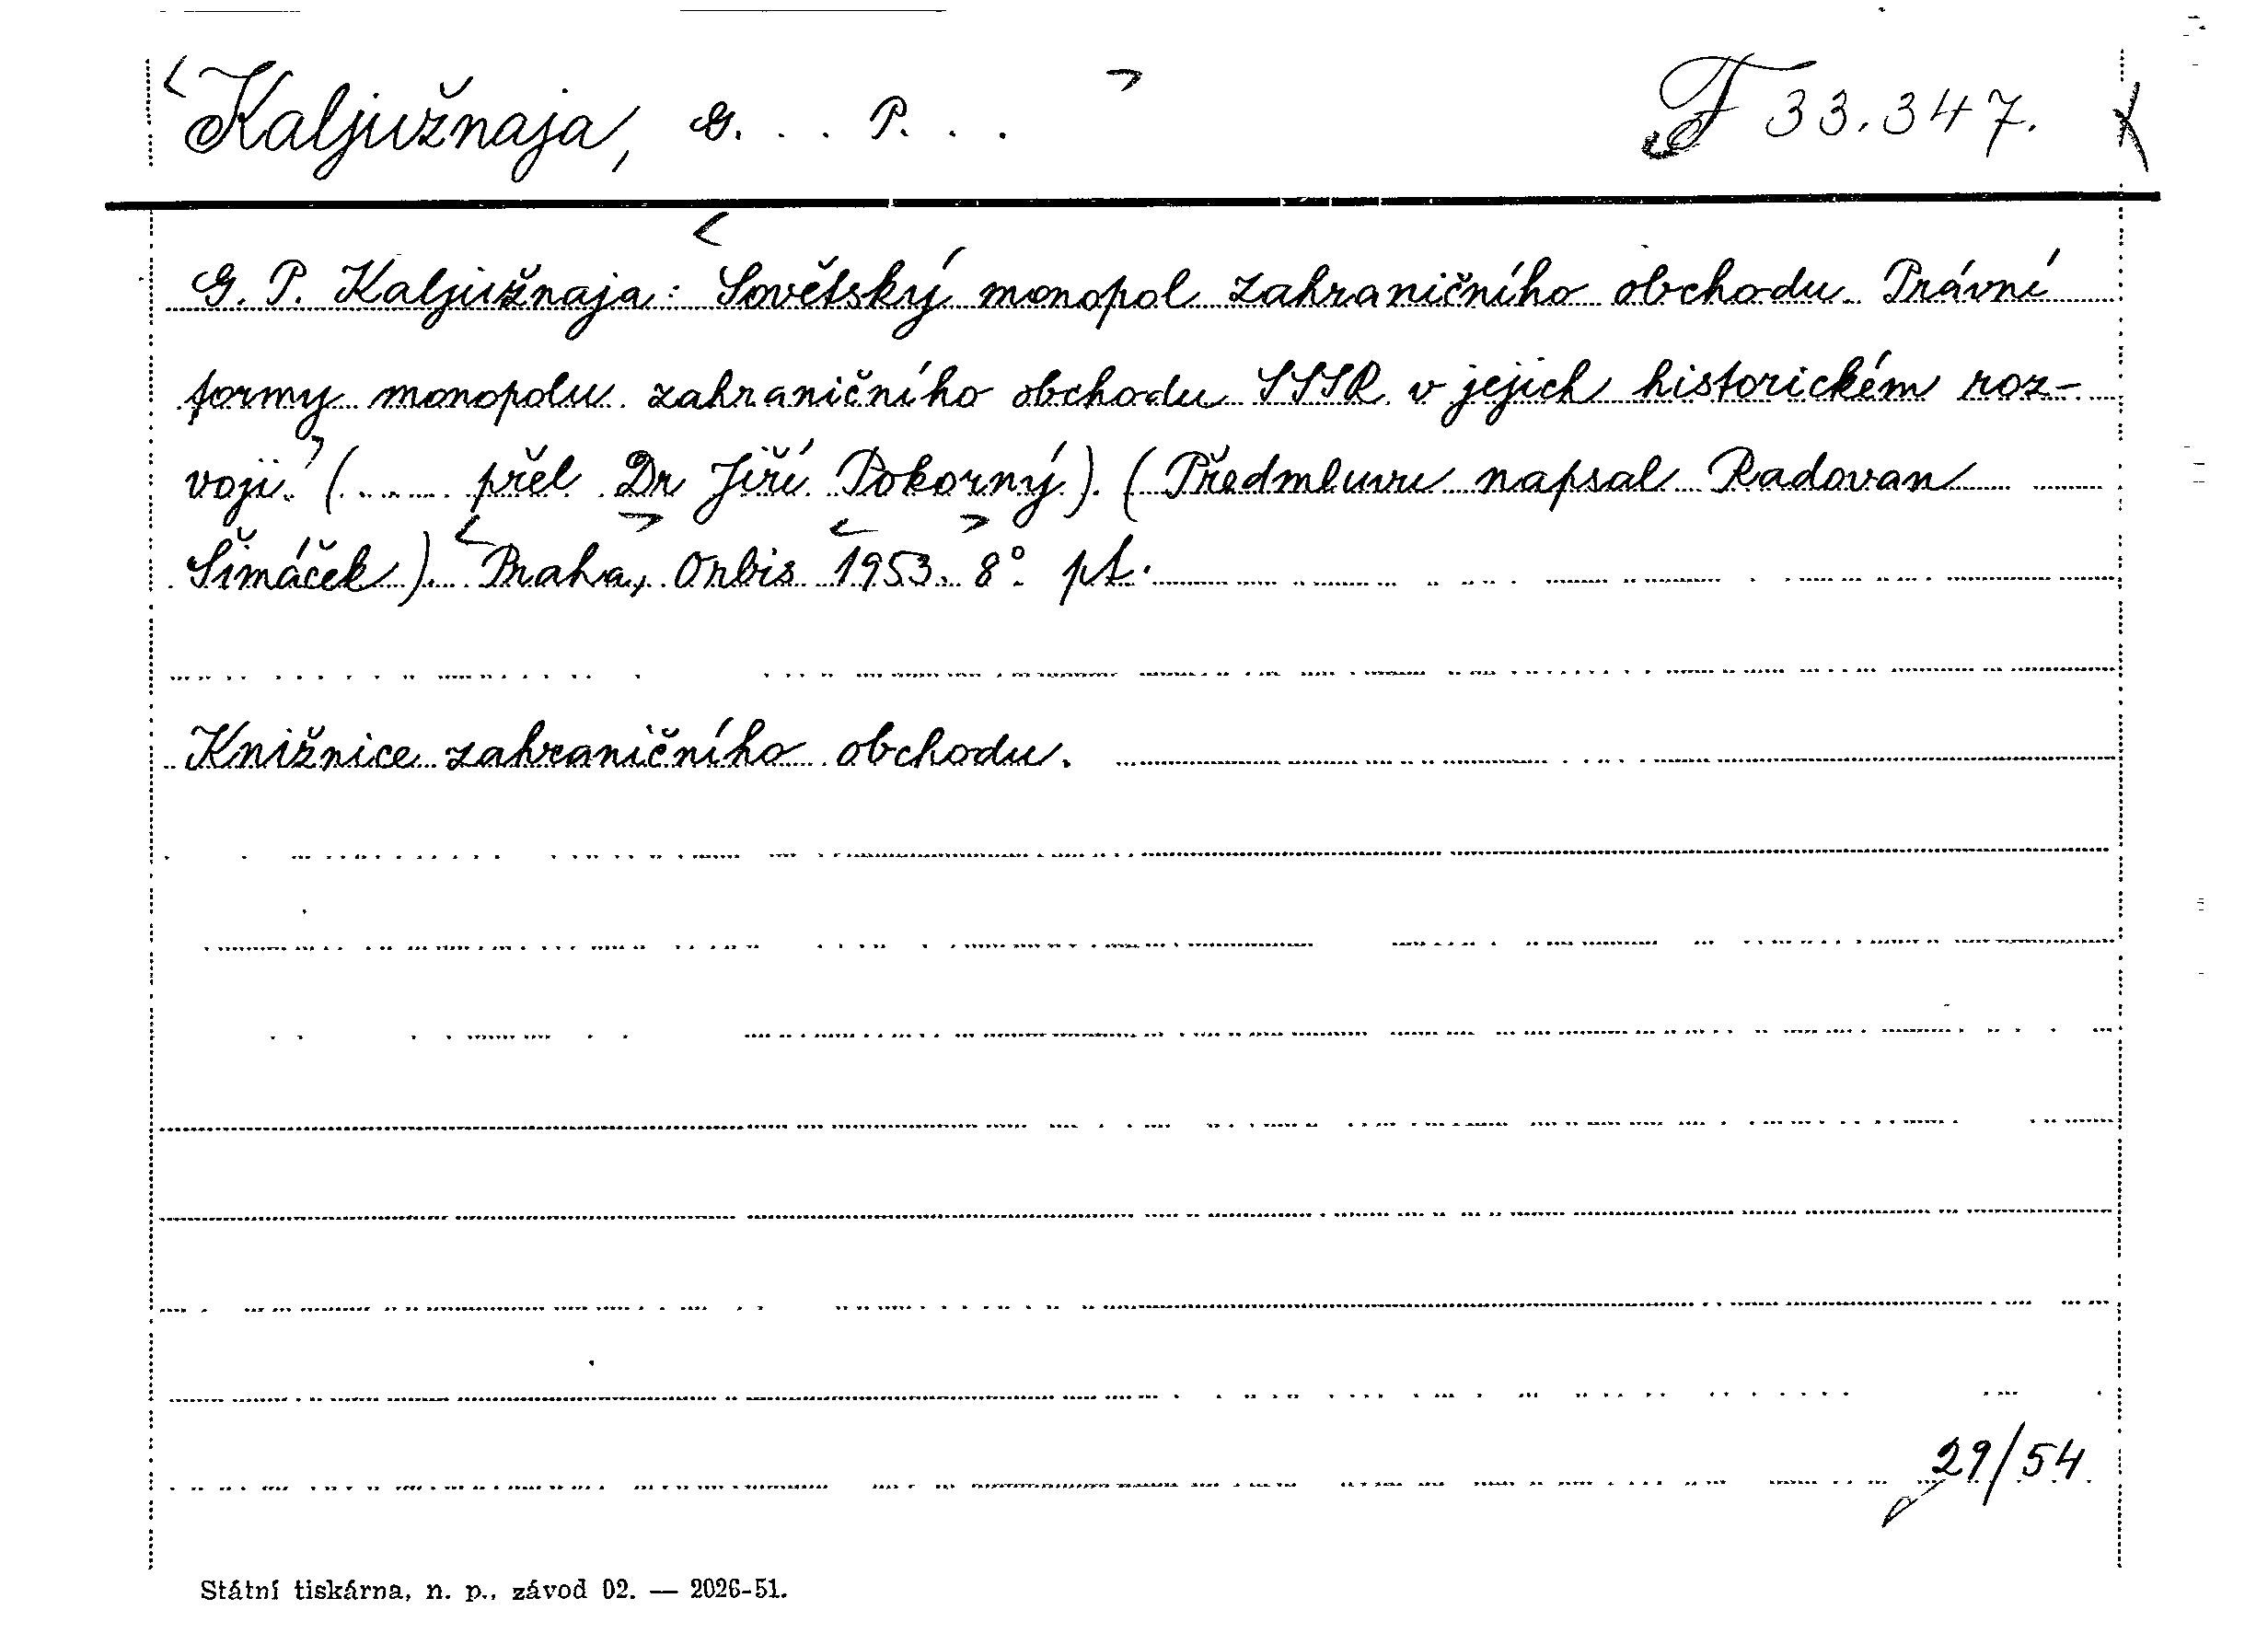 Kaljužnaja, G. . . P. . . F 33.347.
G. P. Kaljužnaja: Sovětský monopol zahraničního obchodu. Právní
formy monopolu zahraničního obchodu SSSR v jejich historickém roz-
voji. (...... přel. Dr Jiří Pokorný). (Předmluvu napsal Radovan
Šimáček). Praha, Orbis 1953. 8° pt.
Knižnice zahraničního obchodu.
29/54
Státní tiskárna, n. p., závod 02. — 2026-51.